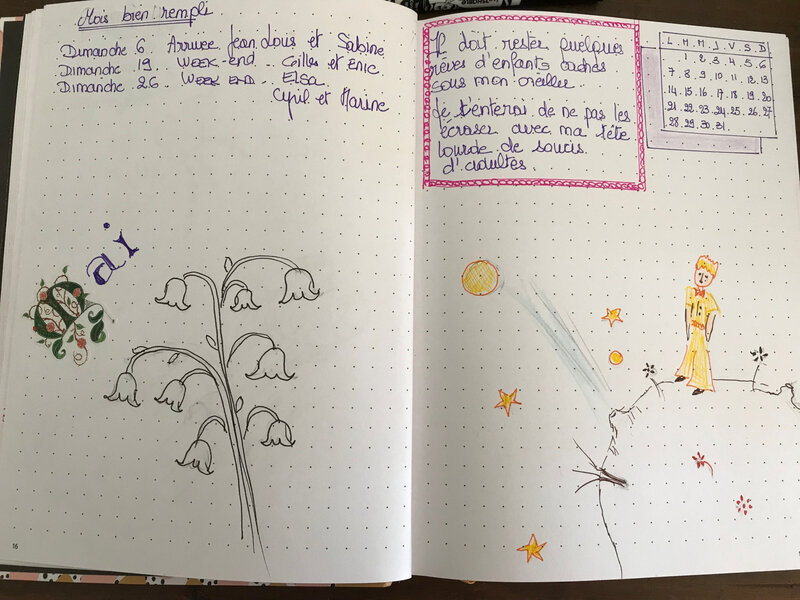 Mois bien rempli
Dimanche 6. Arrivee Jean Louis et Sabine
Dimanche 19. WEEK-END.. Gilles et Enic
Dimanche 26. WEEK END.. ELSA
Cyril et Marine
Mai
16
Il doit rester quelques
rêves d'enfants cachés
sous mon oreiller
Je t'enterai de ne pas les
écraser avec ma tête
lourde de soucis
d'adultes.
L. M. M. J. V. S. D
1. 2. 3. 4. 5. 6
7. 8. 9. 10. 11. 12. 13
14. 15. 16. 17. 18. 19. 20
21. 22. 23. 24. 25. 26. 27
28. 29. 30. 31.